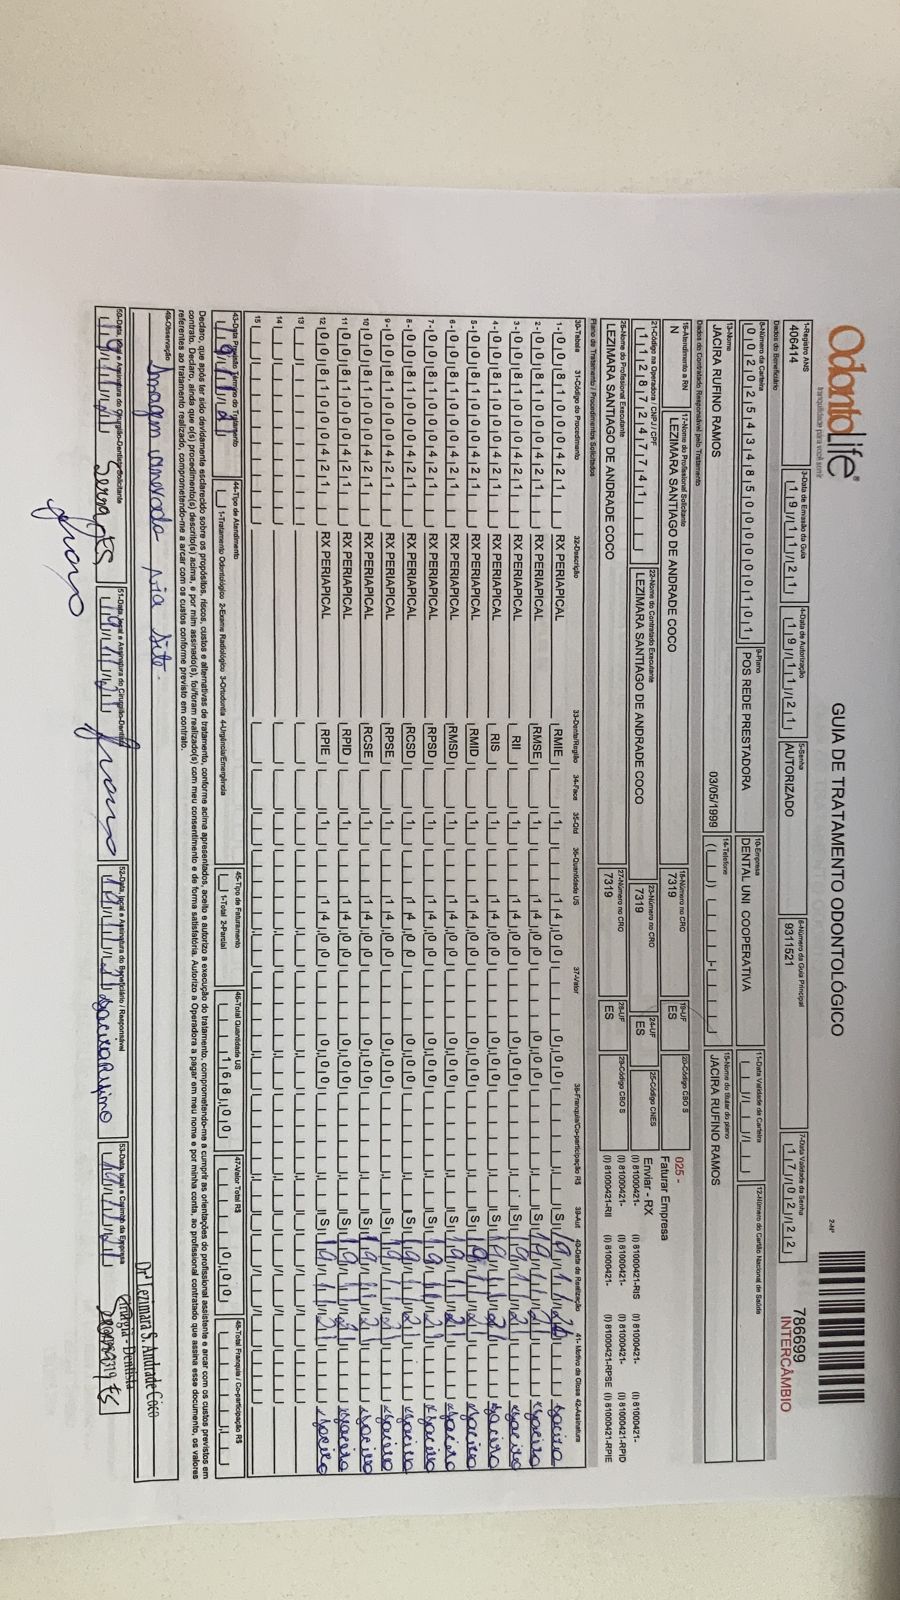 OdontoLife®
tranquilidade para você sorrir
GUIA DE TRATAMENTO ODONTOLÓGICO
2-Nº
786699
INTERCÂMBIO
1-Registro ANS
406414
3-Data de Emissão da Guia
19/11/21
4-Data de Autorização
19/11/21
5-Senha
AUTORIZADO
6-Número da Guia Principal
9311521
7-Data Validade da Senha
17/02/22
Dados do Beneficiário
8-Número da Carteira
00202543485000000101
9-Plano
POS REDE PRESTADORA
10-Empresa
DENTAL UNI COOPERATIVA
11-Data Validade da Carteira
12-Número do Cartão Nacional de Saúde
13-Nome
JACIRA RUFINO RAMOS
03/05/1999
14-Telefone
15-Nome do titular do plano
JACIRA RUFINO RAMOS
Dados do Contratado Responsável pelo Tratamento
16-Atendimento a RN
N
17-Nome do Profissional Solicitante
LEZIMARA SANTIAGO DE ANDRADE COCO
18-Número no CRO
7319
19-UF
ES
20-Código CBO S
025 -
Faturar Empresa
21-Código na Operadora / CNPJ / CPF
11287247741
22-Nome do Contratado Executante
LEZIMARA SANTIAGO DE ANDRADE COCO
23-Número no CRO
7319
24-UF
ES
25-Código CNES
Enviar - RX
26-Nome do Profissional Executante
LEZIMARA SANTIAGO DE ANDRADE COCO
27-Número no CRO
7319
28-UF
ES
29-Código CBO S
(I) 81000421- (I) 81000421-RIS (I) 81000421- (I) 81000421-
(I) 81000421- (I) 81000421- (I) 81000421- (I) 81000421-RPID
(I) 81000421-RII (I) 81000421- (I) 81000421-RPSE (I) 81000421-RPIE
Plano de Tratamento / Procedimentos Solicitados
30-Tabela 31-Código do Procedimento 32-Descrição 33-Dente/Região 34-Face 35-Qtd 36-Quantidade US 37-Valor 38-Franquia/Co-participação R$ 39-Aut 40-Data de Realização 41- Motivo da Glosa 42-Assinatura
1- 00 81000421 RX PERIAPICAL RMIE 1 14,00 0,00 S 19/11/21 Jacira
2- 00 81000421 RX PERIAPICAL RMSE 1 14,00 0,00 S 19/11/21 Jacira
3- 00 81000421 RX PERIAPICAL RII 1 14,00 0,00 S 19/11/21 Jacira
4- 00 81000421 RX PERIAPICAL RIS 1 14,00 0,00 S 19/11/21 Jacira
5- 00 81000421 RX PERIAPICAL RMID 1 14,00 0,00 S 19/11/21 Jacira
6- 00 81000421 RX PERIAPICAL RMSD 1 14,00 0,00 S 19/11/21 Jacira
7- 00 81000421 RX PERIAPICAL RPSD 1 14,00 0,00 S 19/11/21 Jacira
8- 00 81000421 RX PERIAPICAL RCSD 1 14,00 0,00 S 19/11/21 Jacira
9- 00 81000421 RX PERIAPICAL RPSE 1 14,00 0,00 S 19/11/21 Jacira
10 00 81000421 RX PERIAPICAL RCSE 1 14,00 0,00 S 19/11/21 Jacira
11 00 81000421 RX PERIAPICAL RPID 1 14,00 0,00 S 19/11/21 Jacira
12 00 81000421 RX PERIAPICAL RPIE 1 14,00 0,00 S 19/11/21 Jacira
13
14
15
43-Data Previsão Término do Tratamento
19/11/21
44-Tipo de Atendimento
1-Tratamento Odontológico 2-Exame Radiológico 3-Ortodontia 4-Urgência/Emergência
45-Tipo de Faturamento
1-Total 2-Parcial
46-Total Quantidade US
168,00
47-Valor Total R$
0,00
48-Total Franquia / Co-participação R$
Declaro, que após ter sido devidamente esclarecido sobre os propósitos, riscos, custos e alternativas de tratamento, conforme acima apresentados, aceito e autorizo a execução do tratamento, comprometendo-me a cumprir as orientações do profissional assistente e arcar com os custos previstos em
contrato. Declaro, ainda que o(s) procedimento(s) descrito(s) acima, e por mim assinado(s), foi/foram realizado(s) com meu consentimento e de forma satisfatória. Autorizo a Operadora a pagar em meu nome e por minha conta, ao profissional contratado que assina esse documento, os valores
referentes ao tratamento realizado, comprometendo-me a arcar com os custos conforme previsto em contrato.
49-Observação
Imagem anexada via site.
Drª Lezimara S. Andrade Côco
Cirurgiã - Dentista
50-Data, local e Assinatura do Cirurgião-Dentista Solicitante
19/11/21 Serra, ES
51-Data, local e Assinatura do Cirurgião-Dentista
19/11/21
52-Data, local e Assinatura do Beneficiário / Responsável
19/11/21 Jacira Rufino
53-Data, local e Carimbo da Empresa
19/11/21